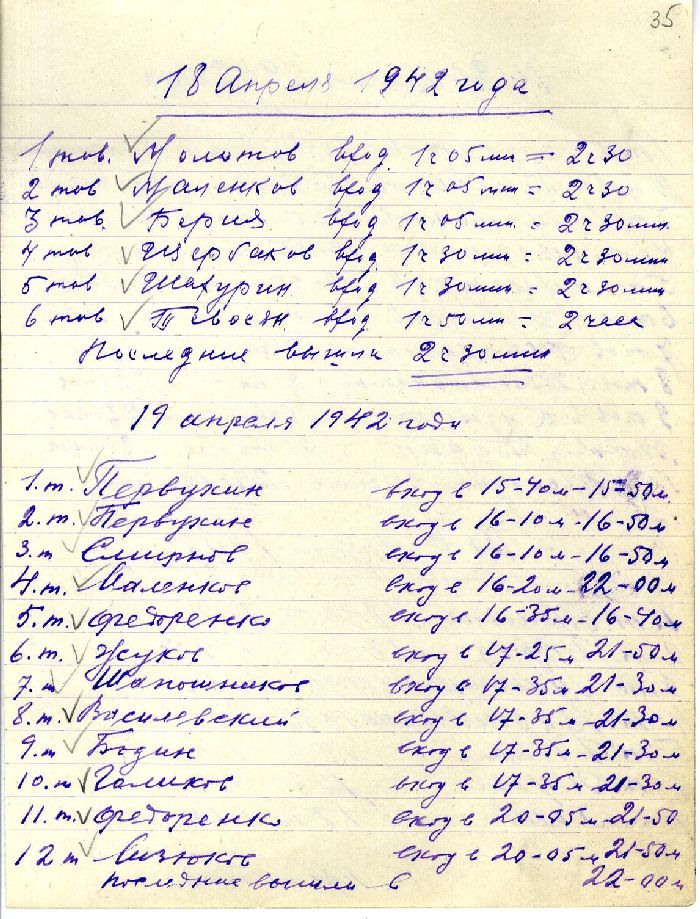 35
18 Апреля 1942 года
1 тов. Молотов вход. 1ч 05 мин = 2ч 30
2 тов Маленков вход 1ч 05 мин = 2ч 30
3 тов. Берия вход 1ч 05 мин. = 2ч 30 мин
4 тов Щербаков вход 1ч 30 мин = 2ч 30 мин
5 тов Шахурин вход 1ч 30 мин = 2ч 30 мин
6 тов Тевосян. вход 1ч 50 мин = 2 часа
Последние вышли 2ч 30 мин
19 апреля 1942 года
1. т. Первухин вход в 15-40м - 15-50м.
2. т. Первухин вход в 16-10м - 16-50м
3. т Смирнов вход в 16-10м - 16-50м
4. т. Маленков вход в 16-20м 22-00м
5. т. Федоренко вход в 16-35м - 16-40м
6. т. Жуков вход в 17-25м 21-50м
7. т Шапошников вход в 17-35м 21-30м
8. т. Василевский вход в 17-35м - 21-30м
9. т Бодин вход в 17-35м - 21-30м
10. т Голиков вход в 17-35м 21-30м
11. т. Федоренко вход в 20-05м - 21-50
12 т Лизюков вход в 20-05м 21-50м
Последние вышли - в 22-00м